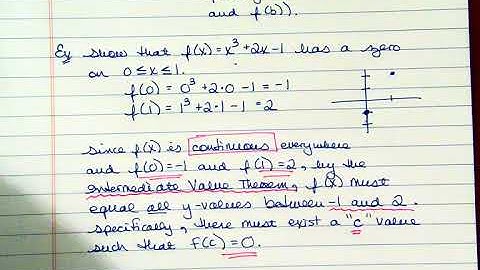 and f(b)).
Ex show that f(x) = x³ + 2x - 1 has a zero
on 0 ≤ x ≤ 1.
f(0) = 0³ + 2·0 - 1 = -1
f(1) = 1³ + 2·1 - 1 = 2
since f(x) is continuous everywhere
and f(0) = -1 and f(1) = 2, by the
Intermediate Value Theorem, f(x) must
equal all y-values between -1 and 2.
specifically, there must exist a "c" value
such that f(c) = 0.